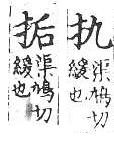 扏
渠鳩切
緩也
㧨
渠鳩切
緩也